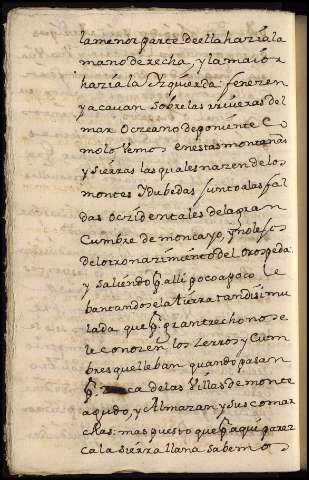 la menor parte de ella hazia la
mano derecha, y la maior
hazia la Yzquierda: fenezen
y acavan sobre las rriveras del
mar Oczeano deponiente Co
molo vemos en estas montañas
y Sierras las quales nazen de los
montes Ydubedas Junto a las fal
das Oczidentales de la gran
Cumbre de moncayo, y no lejos
del otro nazimiento del Orospeda:
y Saliendo por alli poco a poco le
bantandose la tierra tan disimu
lada que por gran trecho no se
le conozen los Zerros y Cum
bres que lleban quando pasan
por zerca de las Villas de monte
agudo, y Almazan y Sus comar
cas: mas puesto que por aqui parez
ca la sierra llana Sabemos